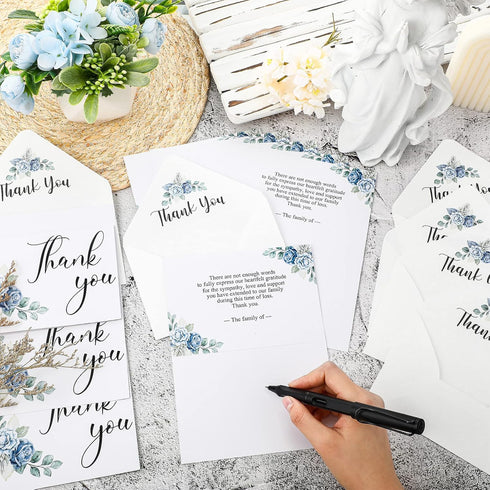 Thank You
Thank
you
Thank
you
Thank
you
Thank You
There are not enough words
to fully express our heartfelt feelings
for the sympathy, love and support
you have extended to our family
during this time of loss.
Thank you
— The family of —
There are not enough words
to fully express our heartfelt feelings
for the sympathy, love and support
you have extended to our family
during this time of loss.
Thank you
— The family of —
Thank You
Thank You
Thank You